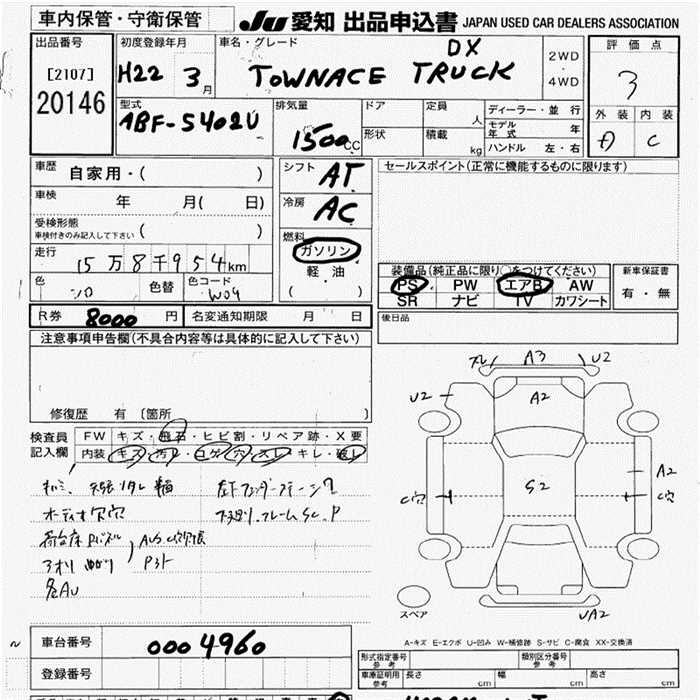 車内保管・守衛保管
JU 愛知 出品申込書 JAPAN USED CAR DEALERS ASSOCIATION
出品番号
[2107]
20146
初度登録年月
H22 3月
車名・グレード
DX
TOWNACE TRUCK
2WD
・
4WD
評価点
3
外装 内装
A C
型式
ABF-S402U
排気量
1500cc
ドア
形状
定員 人
積載 kg
ディーラー・並行
モデル年式 年
ハンドル 左・右
車歴
自家用・( )
車検
年 月( 日)
受検形態
車検付きのみ記入して下さい ( )
走行
15万8千954km
色
シロ
色替
色コード
W09
シフト
AT
冷房
AC
燃料
ガソリン
・
軽油
( )
セールスポイント(正常に機能するものに限ります)
装備品(純正品に限り〇をつけてください)
PS PW エアB AW
SR ナビ TV カワシート
新車保証書
有・無
後日品
R券 8000 円 名変通知期限 月 日
注意事項申告欄(不具合内容等は具体的に記入して下さい)
修復歴 有 〔箇所 〕
検査員
記入欄
FW キズ・飛石・ヒビ割・リペア跡・X要
内装 キズ・汚レ・コゲ・穴・スレ・キレ・破レ
キルミ、天張リタレ
オーディオ穴
荷台床
アオリ
各AU
A3 U2
U2 A2
A2
S2
C穴 C穴
UA2
スペア
A-キズ E-エクボ U-凹み W-補修跡 S-サビ C-腐食 XX-交換済
車台番号 0004960
登録番号
形式指定番号
参考
類別区分番号
参考
車庫証明用
参考
長さ cm 幅 cm 高さ cm